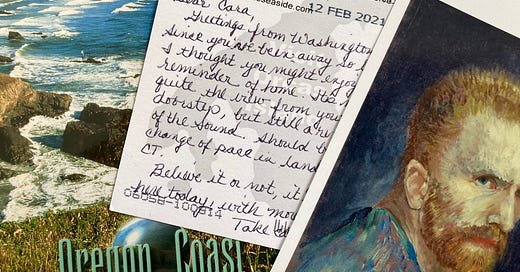 seaside.com
12 FEB 2021
Dear Cara
Greetings from Washington
Since you've been away so
I thought you might enjoy
reminder of home. It's
quite the view from you
doorstep, but still a
of the Sound. Should b
change of pace in land
CT.
Believe it or not, it
here today, with mo
Take
06058-100814
Oregon Coast